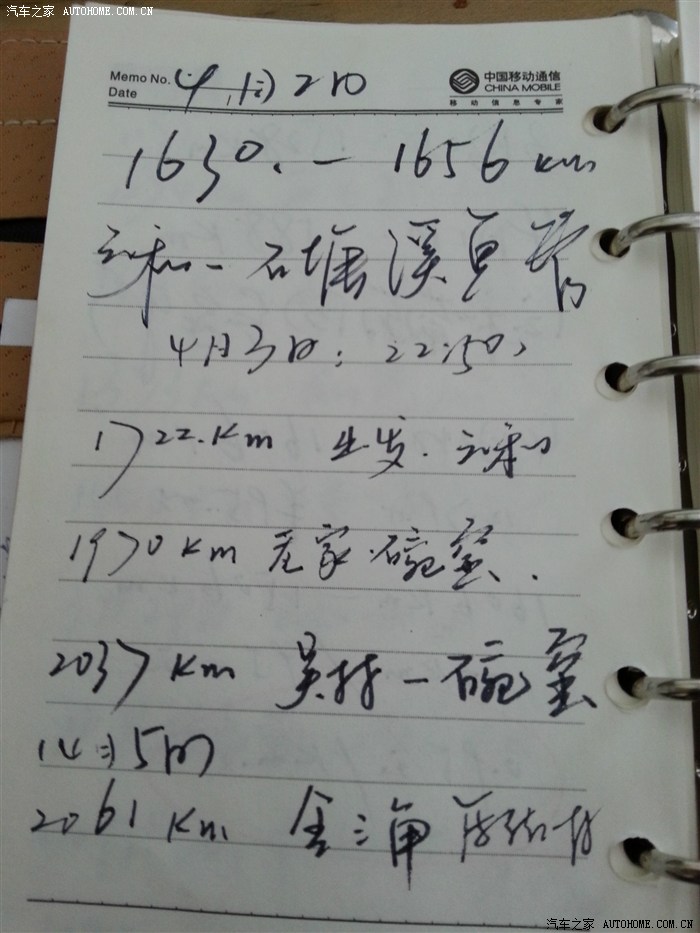 汽车之家 AUTOHOME.COM.CN
Memo No. 4月2日
Date
中国移动通信
CHINA MOBILE
移动信息专家
1630.一1656 km
云和一石塘溪
4月3日:22:50
1722.Km 出发.云和
1970 Km 碗窑.
2037 Km 吴村一碗窑
4月5日
2061 Km 金三角
汽车之家 AUTOHOME.COM.CN